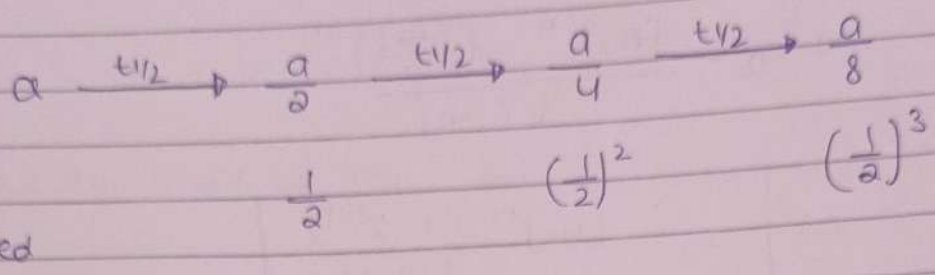 a t1/2 → a/2 t1/2 → a/4 t1/2 → a/8
1/2 (1/2)² (1/2)³
ed